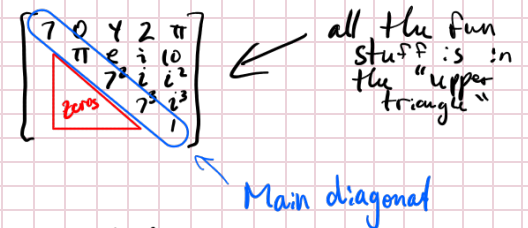 7 0 4 2 π
π e i 10
7² i i²
7³ i³
1
zeros
all the fun
stuff is in
the "upper
triangle"
Main diagonal